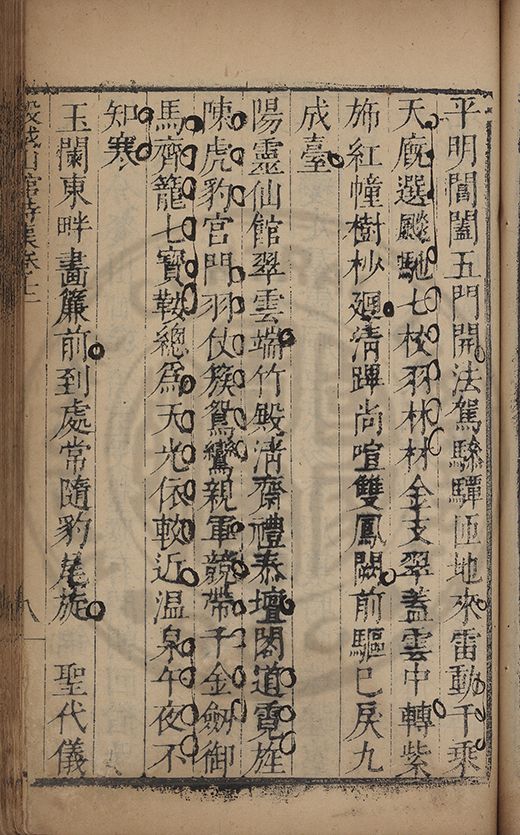 平明閶闔五門開法駕騄驒匝地來雷動千乘
天廐選飈馳七校羽林材金支翠蓋雲中轉紫
斾紅幢樹杪廻清蹕尚喧雙鳳闕前驅已戾九
成臺
陽靈仙館翠雲端竹殿清齋禮泰壇閣道霓旌
陳虎豹宮門羽仗簇鴛鸞親軍競帶千金劒御
馬齊籠七寶鞍總爲天光依較近温泉午夜不
知寒
玉闌東畔畵簾前到處常隨豹尾旋 聖代儀
穀城山館詩集卷十二
八